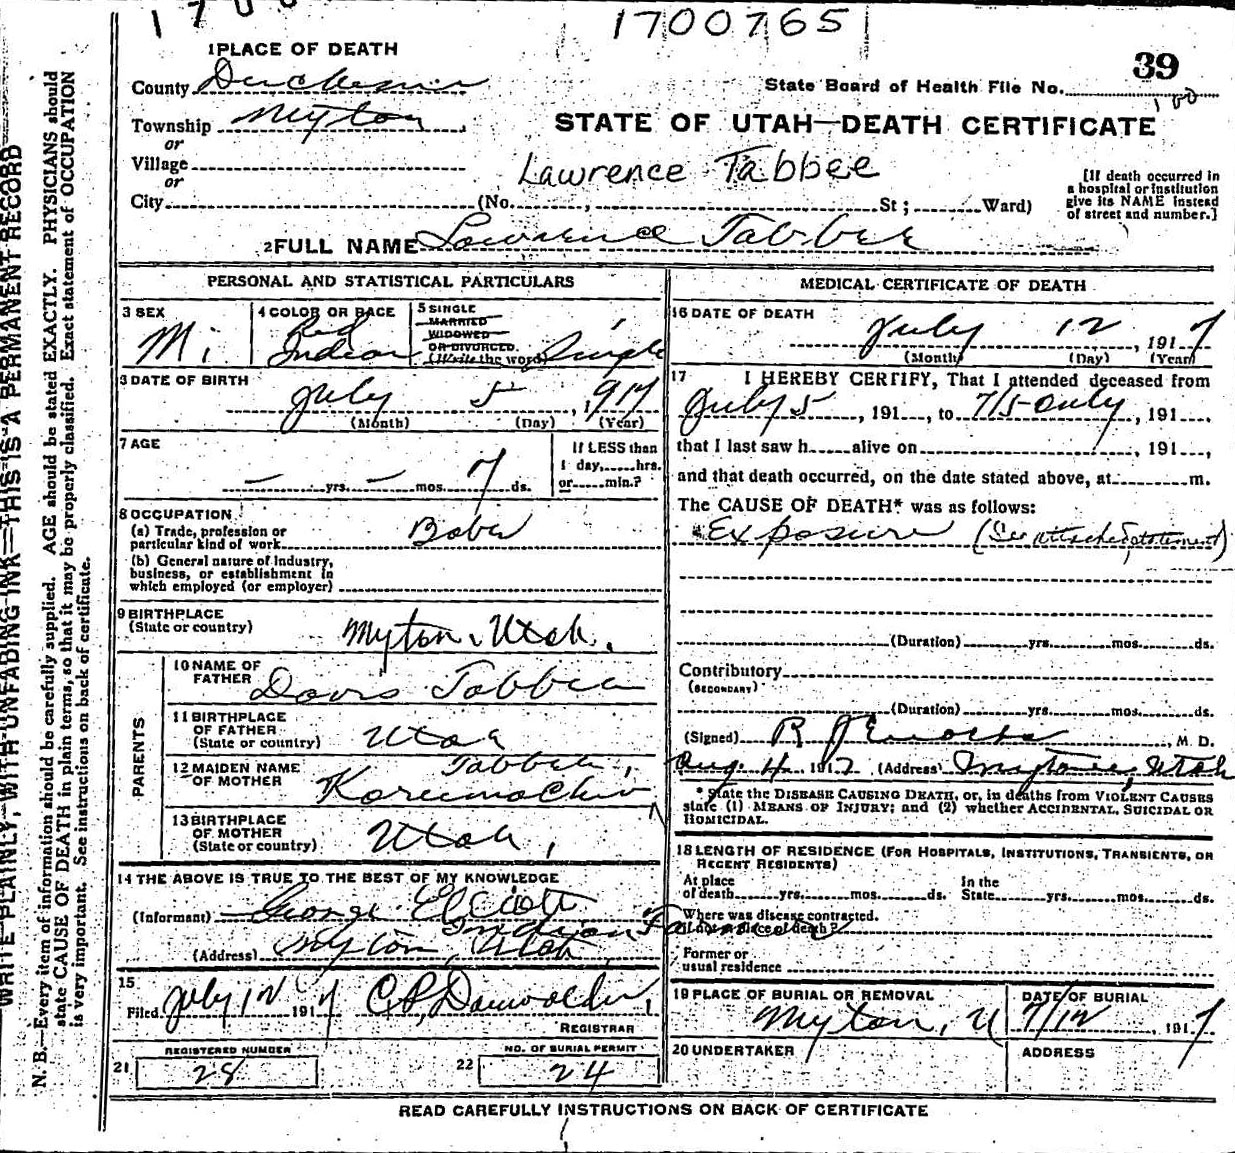 1700765
1 PLACE OF DEATH
39
County Duchesne
State Board of Health File No. 100
Township Myton
or
STATE OF UTAH—DEATH CERTIFICATE
Village
or
Lawrence Tabbee
[If death occurred in a hospital or institution give its NAME instead of street and number.]
City (No. , St ; Ward)
2 FULL NAME Lawrence Tabbee
PERSONAL AND STATISTICAL PARTICULARS
3 SEX M
4 COLOR OR RACE Red Indian
5 SINGLE
MARRIED
WIDOWED
OR DIVORCED.
(Write the word) Single
3 DATE OF BIRTH
July 5, 1917
(Month) (Day) (Year)
7 AGE
— yrs. — mos. 7 ds.
If LESS than
1 day, hrs.
or min.?
8 OCCUPATION
(a) Trade, profession or
particular kind of work
(b) General nature of industry,
business, or establishment in
which employed (or employer)
9 BIRTHPLACE
(State or country) Myton, Utah.
PARENTS
10 NAME OF
FATHER Tabbee
11 BIRTHPLACE
OF FATHER
(State or country) Utah
12 MAIDEN NAME
OF MOTHER Tabbee,
13 BIRTHPLACE
OF MOTHER
(State or country) Utah,
14 THE ABOVE IS TRUE TO THE BEST OF MY KNOWLEDGE
(Informant) George Elliott
Indian Farmer
(Address) Myton, Utah
15
Filed July 12 1917
REGISTRAR
21 REGISTERED NUMBER
28
22 NO. OF BURIAL PERMIT
24
MEDICAL CERTIFICATE OF DEATH
16 DATE OF DEATH
July 12, 1917
(Month) (Day) (Year)
17 I HEREBY CERTIFY, That I attended deceased from
July 5, 191 , to 7/5 only, 191 ,
that I last saw h alive on , 191 ,
and that death occurred, on the date stated above, at m.
The CAUSE OF DEATH* was as follows:
Exposure (See attached statement)
(Duration) yrs. mos. ds.
Contributory
(SECONDARY)
(Duration) yrs. mos. ds.
(Signed) R J Enochs, M. D.
Aug. 4 1917 (Address) Myton, Utah
* State the DISEASE CAUSING DEATH, or, in deaths from VIOLENT CAUSES
state (1) MEANS OF INJURY; and (2) whether ACCIDENTAL, SUICIDAL OR
HOMICIDAL.
18 LENGTH OF RESIDENCE (FOR HOSPITALS, INSTITUTIONS, TRANSIENTS, OR
RECENT RESIDENTS)
At place
of death yrs. mos. ds.
In the
State yrs. mos. ds.
Where was disease contracted.
if not at place of death?
Former or
usual residence
19 PLACE OF BURIAL OR REMOVAL
Myton, U
DATE OF BURIAL
7/12, 1917
20 UNDERTAKER
ADDRESS
READ CAREFULLY INSTRUCTIONS ON BACK OF CERTIFICATE
WRITE PLAINLY, WITH UNFADING INK—THIS IS A PERMANENT RECORD
N. B.—Every item of information should be carefully supplied. AGE should be stated EXACTLY. PHYSICIANS should
state CAUSE OF DEATH in plain terms, so that it may be properly classified. Exact statement of OCCUPATION
is very important. See instructions on back of certificate.